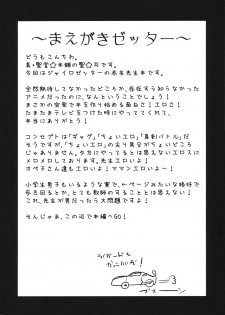 ～まえがきゼッター～
どうもこんちわ。
真・聖堂☆本舗の聖☆司です。
今回はジャイロゼッターの赤名先生本です。
全然期待してなかったどころか、存在すら知らなかった
アニメだったのに、なんということでしょう。
まさかの突発で本を作り始める面白さ！エロさ！
たまたまテレビをつけた時にやっててくれて、
本当にありがとう！
コンセプトは「ギャグ」「ちょいエロ」「真剣バトル」だ
そうですが、「ちょいエロ」の尖り具合がちょいどころ
じゃありません。夕方にやってるとは思えないエロスに
メロメロしております。先生エロいよ！
オペ子さん達もエロいよ！ママンエロいよー！
小学生男子もいるような家で、
歩き回るとか、とても教師のすることとは思えない！
これ、先生が男だったら大問題ですよ！
そんじゃま、この辺で本編へGO！
ライバードも
かっこいいぞ！
ブオーン